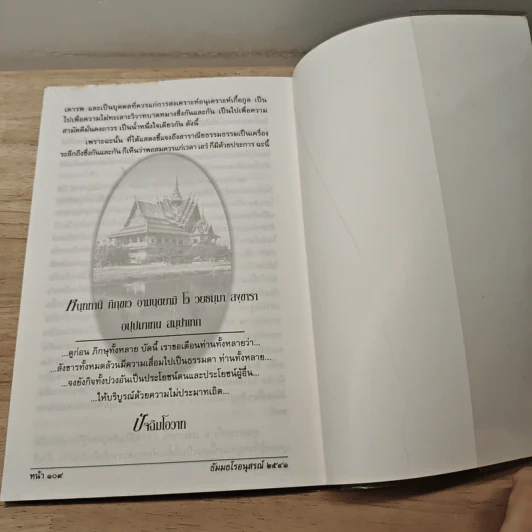 เคารพ และเป็นบุคคลที่ควรแก่การสงเคราะห์อนุเคราะห์เกื้อกูล เป็น
ไปเพื่อความไม่ทะเลาะวิวาทบาดหมางซึ่งกันและกัน เป็นไปเพื่อความ
สามัคคีมั่นคงถาวร เป็นน้ำหนึ่งใจเดียวกัน ดังนี้
เพราะฉะนั้น ที่ได้แสดงชี้แจงถึงสาราณียธรรมธรรมเป็นเครื่อง
ระลึกถึงซึ่งกันและกัน ก็เห็นว่าพอสมควรแก่เวลา เอวํ ก็มีด้วยประการ ฉะนี้
หนฺททานิ ภิกฺขเว อามนฺตยามิ โว วยธมฺมา สงฺขารา
อปฺปมาเทน สมฺปาเทถ
...ดูก่อน ภิกษุทั้งหลาย บัดนี้ เราขอเตือนท่านทั้งหลายว่า...
...สังขารทั้งหมดล้วนมีความเสื่อมไปเป็นธรรมดา ท่านทั้งหลาย...
...จงยังกิจทั้งปวงอันเป็นประโยชน์ตนและประโยชน์ผู้อื่น...
...ให้บริบูรณ์ด้วยความไม่ประมาทเถิด...
ปัจฉิมโอวาท
หน้า ๑๐๙
ธัมมธโรอนุสรณ์ ๒๕๔๑